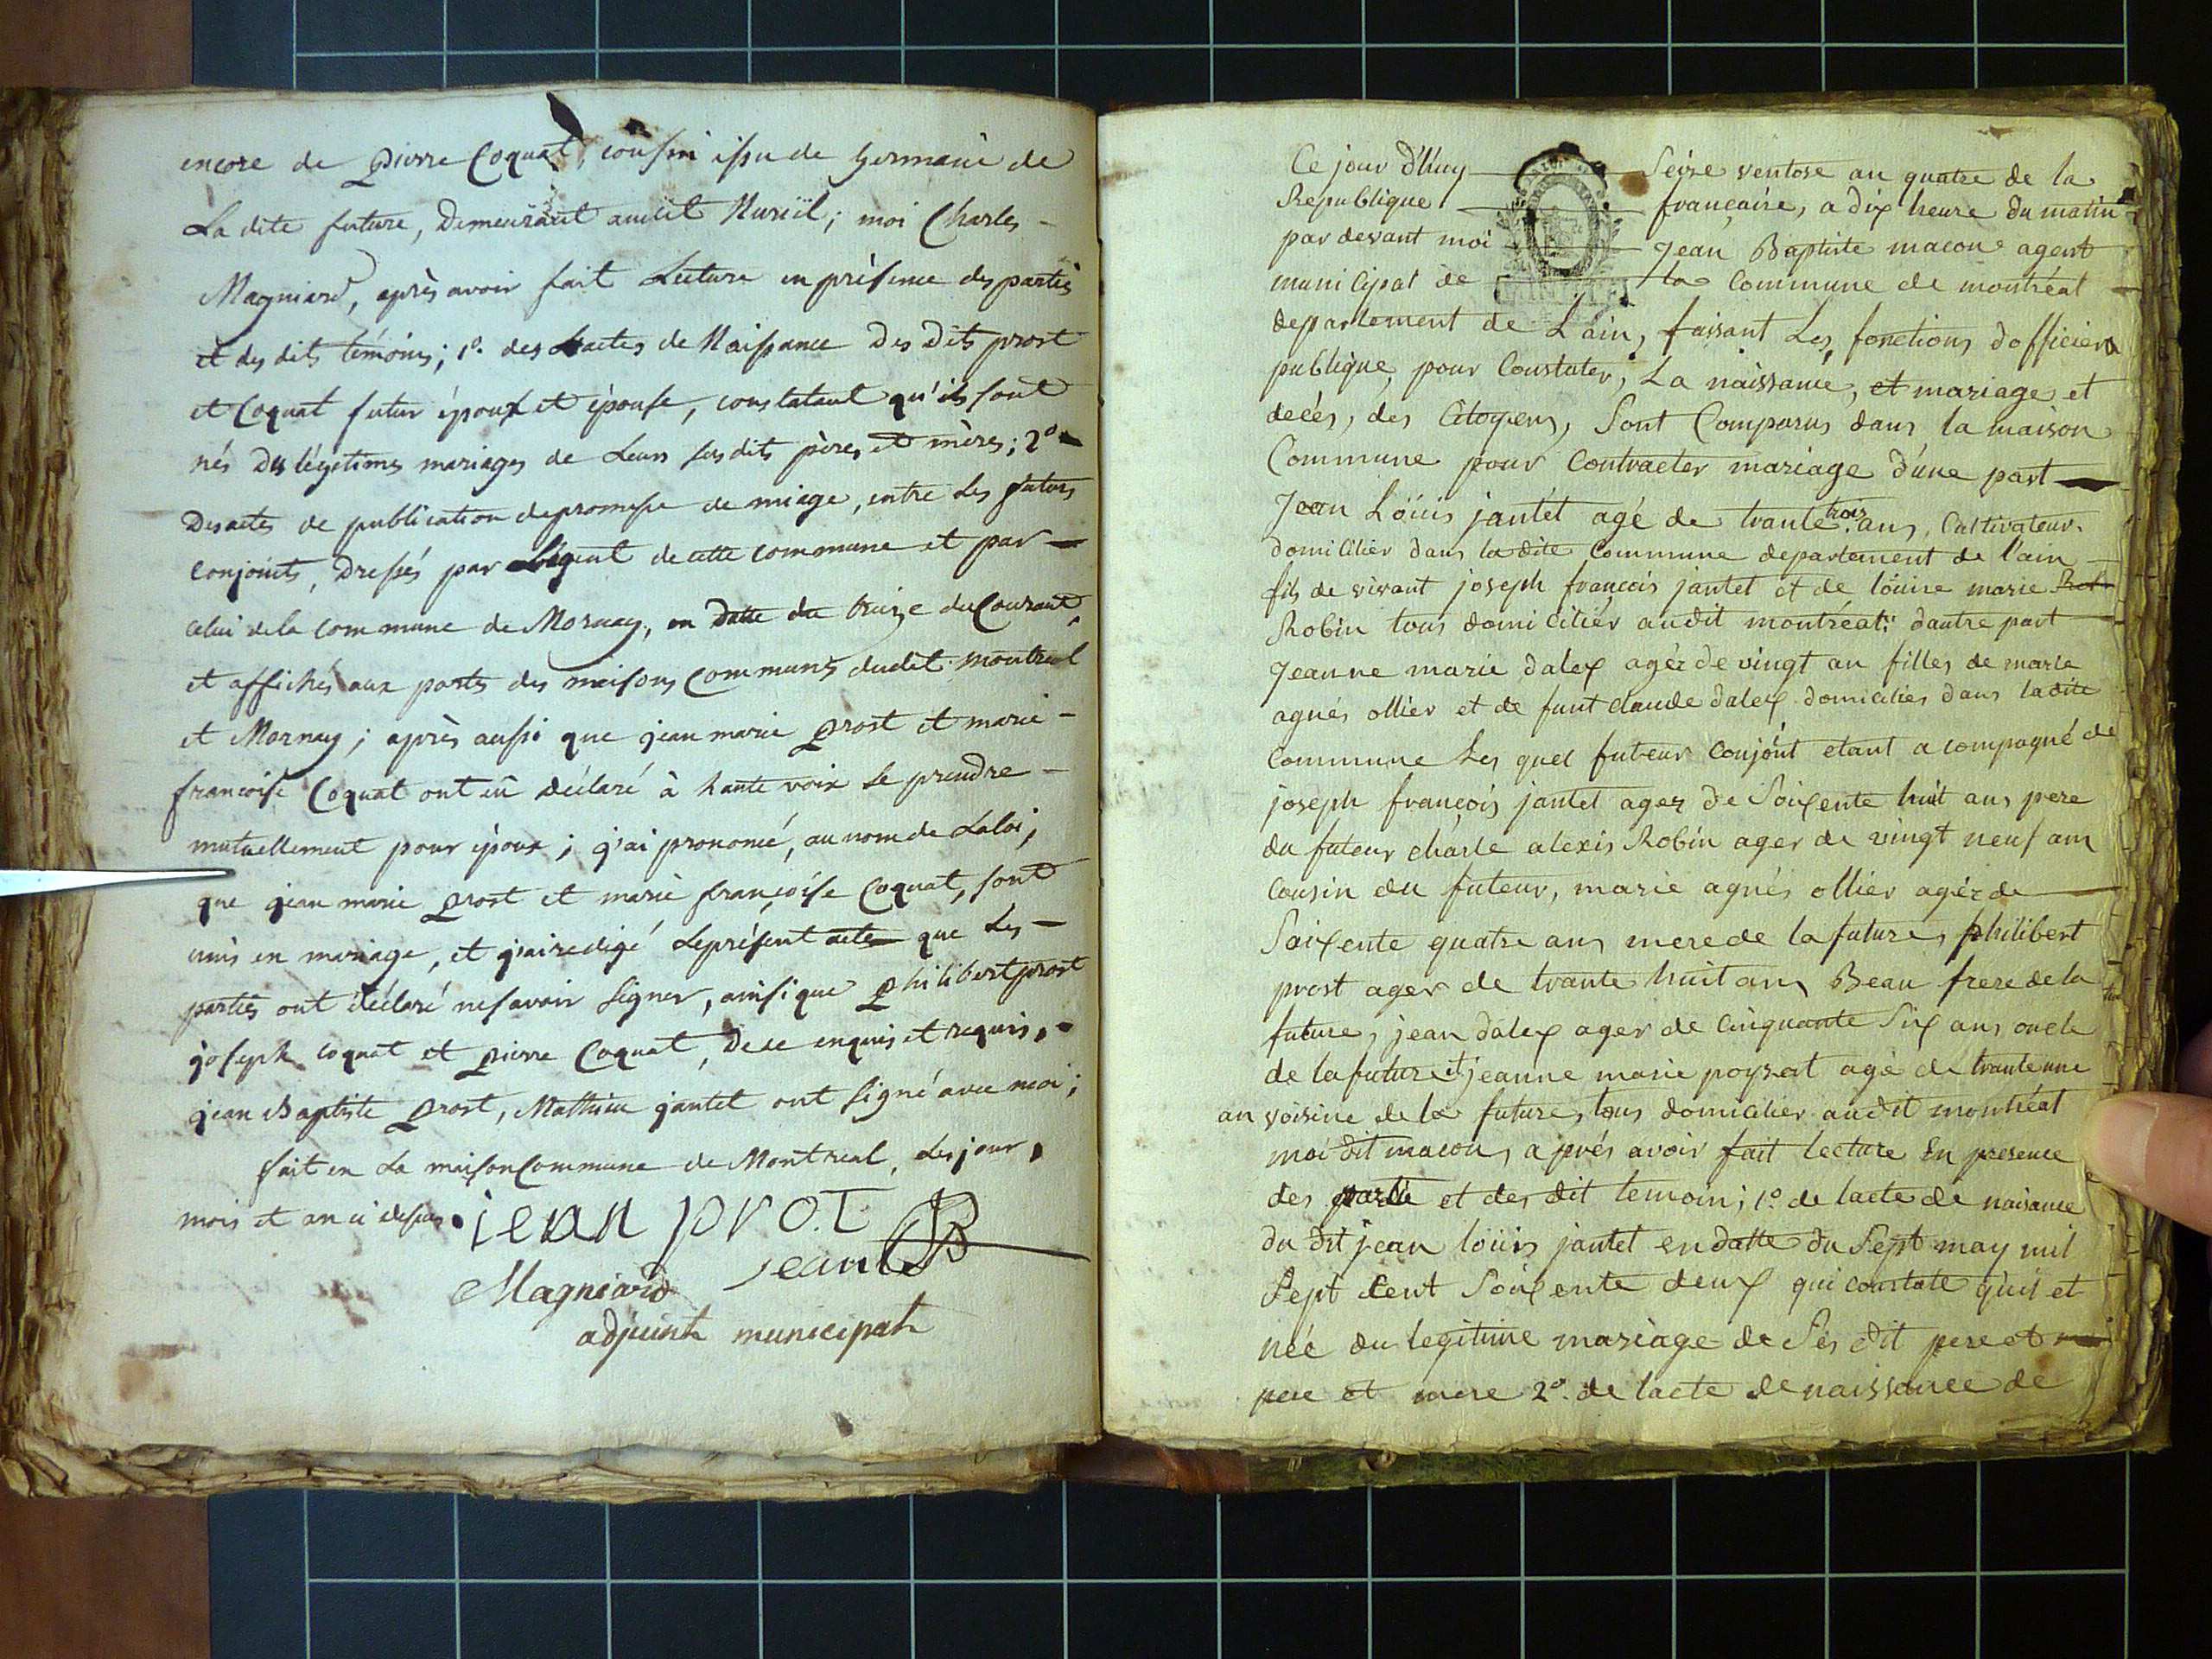 encore de pierre Coquat, cousin issu de germain de
La dite future, Demeurant audit Nuriil; moi Charles -
Magniard, après avoir fait Lecture en présence des parties
et des dits témoins; 1º. des actes de Naissance Des Dits prost
et Coquat futur époux et épouse, constatant qu'ils sont
nés Des légitimes mariages de Leurs susdits pères et mères; 2º
Des actes de publication de promesse de miage, entre Les futurs
conjoints, Dressés par L'agent de cette commune et par
celui de la commune de Mornay, en Datte du treize du Courant,
et affichés aux portes des maisons Communes dudit montreal
et Mornay; après aussi que jean marie prost et marie -
françoise Coquat ont eû déclaré à haute voix Se prendre -
mutuellement pour époux; j'ai prononcé, au nom de La loi,
que jean marie prost et marie françoise Coquat, sont
unis en mariage, et j'ai redigé Le présent acte que Les -
parties ont déclaré ne savoir signer, ainsi que philibert prost
joseph coquat et pierre Coquat, De ce enquis et requis,
jean Baptiste prost, Mathieu jantet ont signé avec moi;
fait en La maison Commune de Montreal, Les jour,
mois et an ci dessus. jean prot
Magniard
adjuint municipal
Ce jour d'huy Seize ventose an quatre de la
Republique francaire, a dix heure du matin
par devant moi Jean Baptiste macon agent
municipal de la Commune de montréal
departement de Lain, faisant Les fonctions dofficier
publique, pour Constater, La naissance, et mariage et
decés, des Citoyens, Sont Comparus dans la maison
Commune pour Contracter mariage d'une part
Jean Loüis jantét agé de trante trois ans, Cultivateur
domicilier dans la dite Commune departement de l'ain
fils de vivant joseph françois jantet et de loüise marie
Robin tous domicilier audit montréal; dautre part
Jeanne marie dalex agér de vingt an filles de marie
agnés ollier et de funt claude dalex domicilies dans ladite
Commune Les quel futeur Conjoint etant a compagné de
joseph françois jantet ager de Soixente huit ans pere
du futeur charle alexis Robin ager de vingt neuf ans
Cousin du futeur, marie agnés ollier agér de
Soixente quatre ans mere de la future, philibert
prost ager de trante huit ans Beau frere de la
future, jean dalex ager de Cinquante Six ans oncle
de la future et jeanne marie poysat agé de trante une
an voisine de la future, tous domicilier audit montréal
moi dit macon, aprés avoir fait lecture En presence
des partie et des dit temoin; 1º. de lacte de naisance
du dit jean loüis jantet en datte du Sept may mil
Sept Cent Soixente deux qui constate quil et
née du legitime mariage de Ses dit pere et
pere et mere 2º. de lacte de naissance de